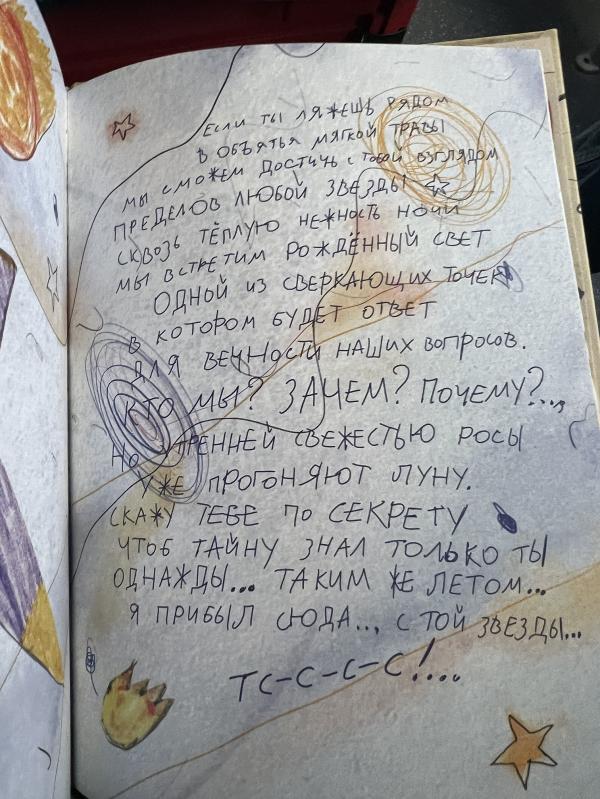 Если ты ляжешь рядом
в объятья мягкой травы
мы сможем достичь с тобой взглядом
пределов любой звезды
сквозь тёплую нежность ночи
мы встретим рождённый свет
одной из сверкающих точек
в котором будет ответ
для вечности наших вопросов.
Кто мы? Зачем? Почему?...
Но утренней свежестью росы
уже прогоняют луну.
скажу тебе по секрету
чтоб тайну знал только ты
однажды... таким же летом...
я прибыл сюда... с той звезды...
тс-с-с-с!....